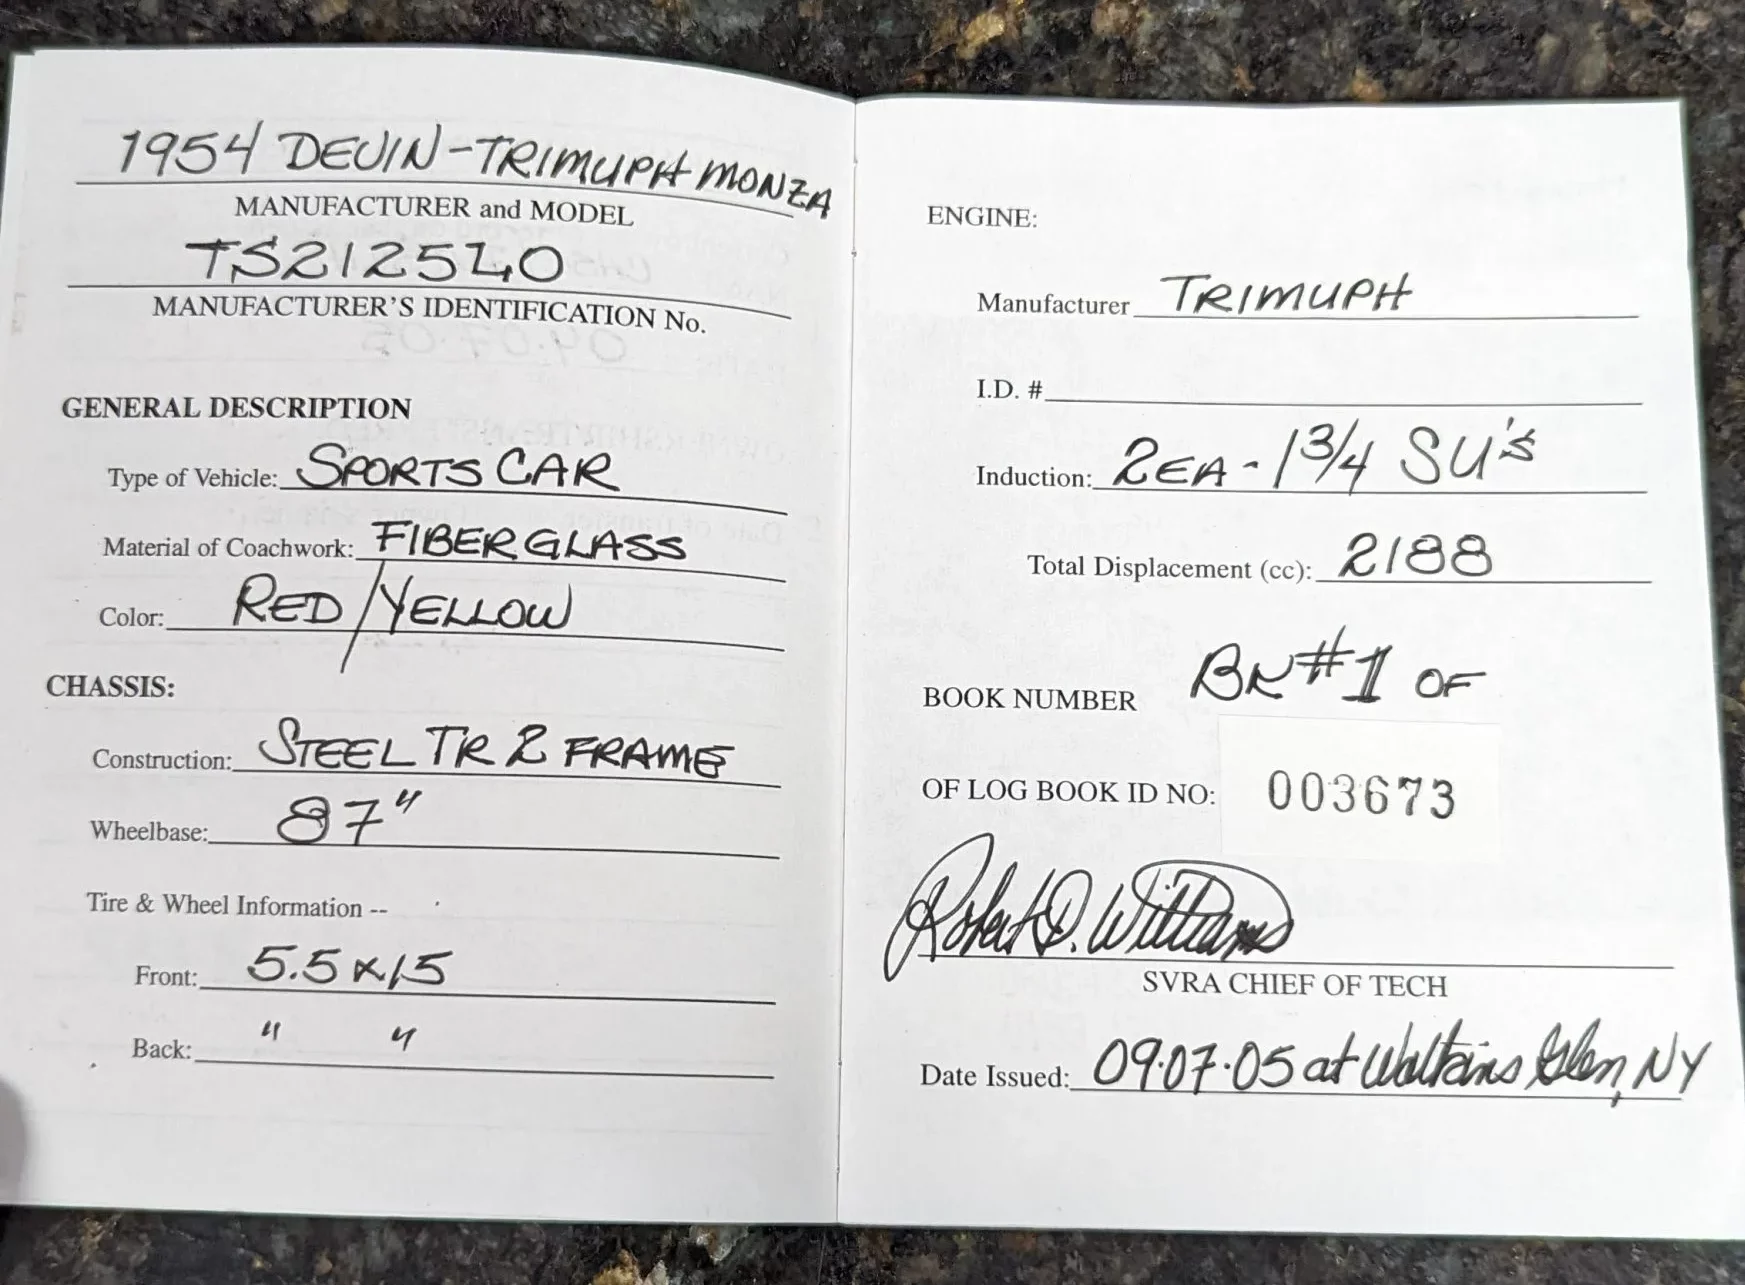 1954 DEVIN-TRIMUPH MONZA
MANUFACTURER and MODEL
TS2125LO
MANUFACTURER'S IDENTIFICATION No.
GENERAL DESCRIPTION
Type of Vehicle: SPORTS CAR
Material of Coachwork: FIBERGLASS
Color: RED/YELLOW
CHASSIS:
Construction: STEEL TR2 FRAME
Wheelbase: 87"
Tire & Wheel Information --
Front: 5.5 x 15
Back: " "
ENGINE:
Manufacturer TRIMUPH
I.D. #
Induction: 2EA - 1 3/4 SU's
Total Displacement (cc): 2188
BOOK NUMBER BN#1 OF
OF LOG BOOK ID NO: 003673
Robert D. Williams
SVRA CHIEF OF TECH
Date Issued: 09.07.05 at Watkins Glen, NY